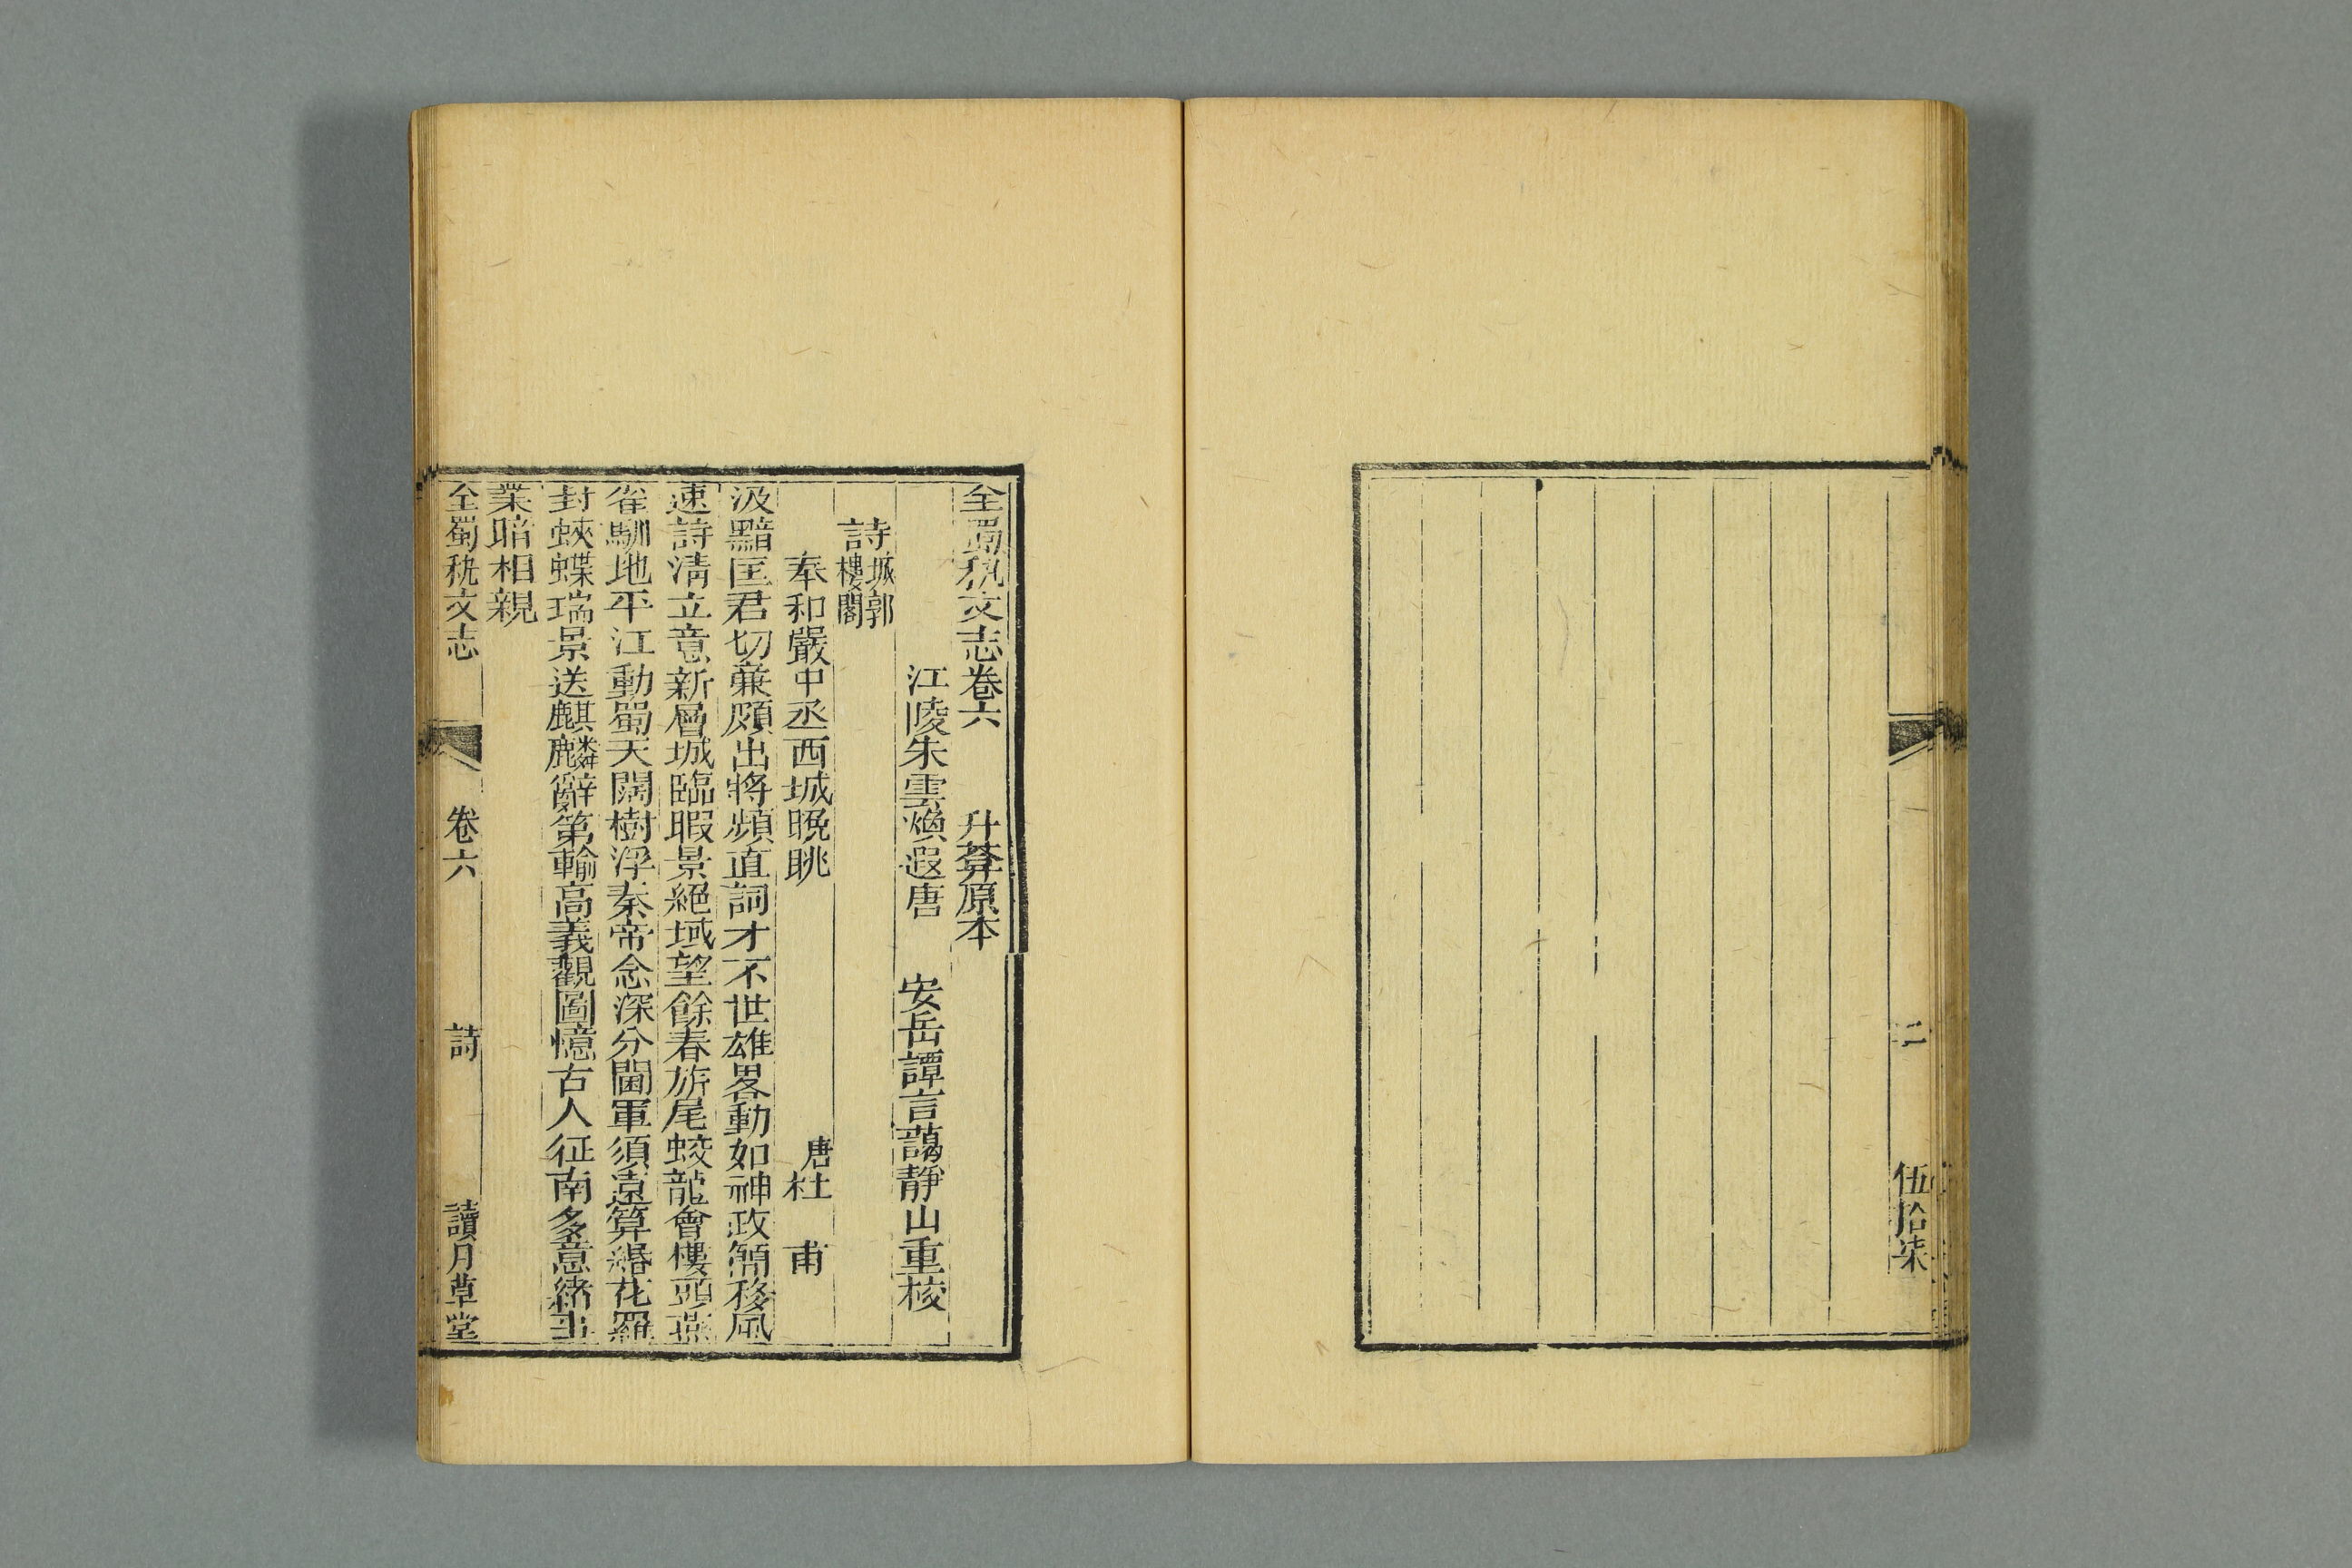 二
伍拾柒
全蜀秇文志卷六　升菴原本
江陵朱雲煥遐唐　安岳譚言藹靜山重校
詩城郭樓閣
奉和嚴中丞西城晚眺　唐杜甫
汲黯匡君切蒹頗出將頻直詞才不世雄畧動如神政簡移風
速詩淸立意新層城臨暇景絕域望餘春旂尾蛟龍會樓頭燕
雀馴地平江動蜀天闊樹浮秦帝念深分閫軍須遠算緡花羅
封蛺蝶瑞景送麒麟辭第輸高義觀圖憶古人征南多意緒事
業暗相親
全蜀秇文志　卷六　詩　讀月草堂